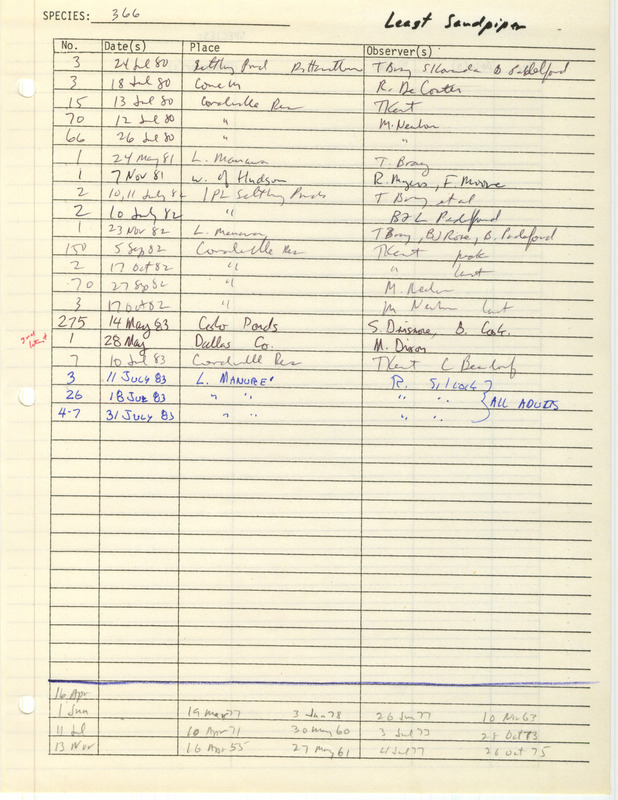 SPECIES: 366 Least Sandpiper
No. Date(s) Place Observer(s)
3 24 Jul 80 Settling Pond T Bray
3 18 Jul 80 R. De Coster
15 13 Jul 80 Coralville Res TKent
70 12 Jul 80 " M. Newlon
66 26 Jul 80 " "
1 24 May 81 L. Manawa T. Bray
1 7 Nov 81 W. of Hudson R. Myers, F. Moore
2 10, 11 July 82 IPL Settling Ponds T Bray et al
2 10 July 82 " B & L Padelford
1 23 Nov 82 L. Manawa T Bray, BJ Rose, B. Padelford
150 5 Sep 82 Coralville Res TKent peak
2 17 Oct 82 " " last
70 27 Sep 82 " M. Newlon
3 17 Oct 82 " M Newlon last
275 14 May 83 Cedar Ponds S. Dinsmore, B.
1 28 May Dallas Co. M. Dixon
7 10 Jul 83 Coralville Res TKent C Bendorf
3 11 JULY 83 L. MANAWA R. Silcock
26 18 JUL 83 " " " " ALL ADULTS
4-7 31 JULY 83 " " " "
16 Apr
1 Jun 19 Mar 77 3 Jun 78 26 Jun 77 10 Nov 63
11 Jul 10 Apr 71 30 May 60 3 Jul 77 28 Oct 73
13 Nov 16 Apr 55 27 May 61 4 Jul 77 26 Oct 75